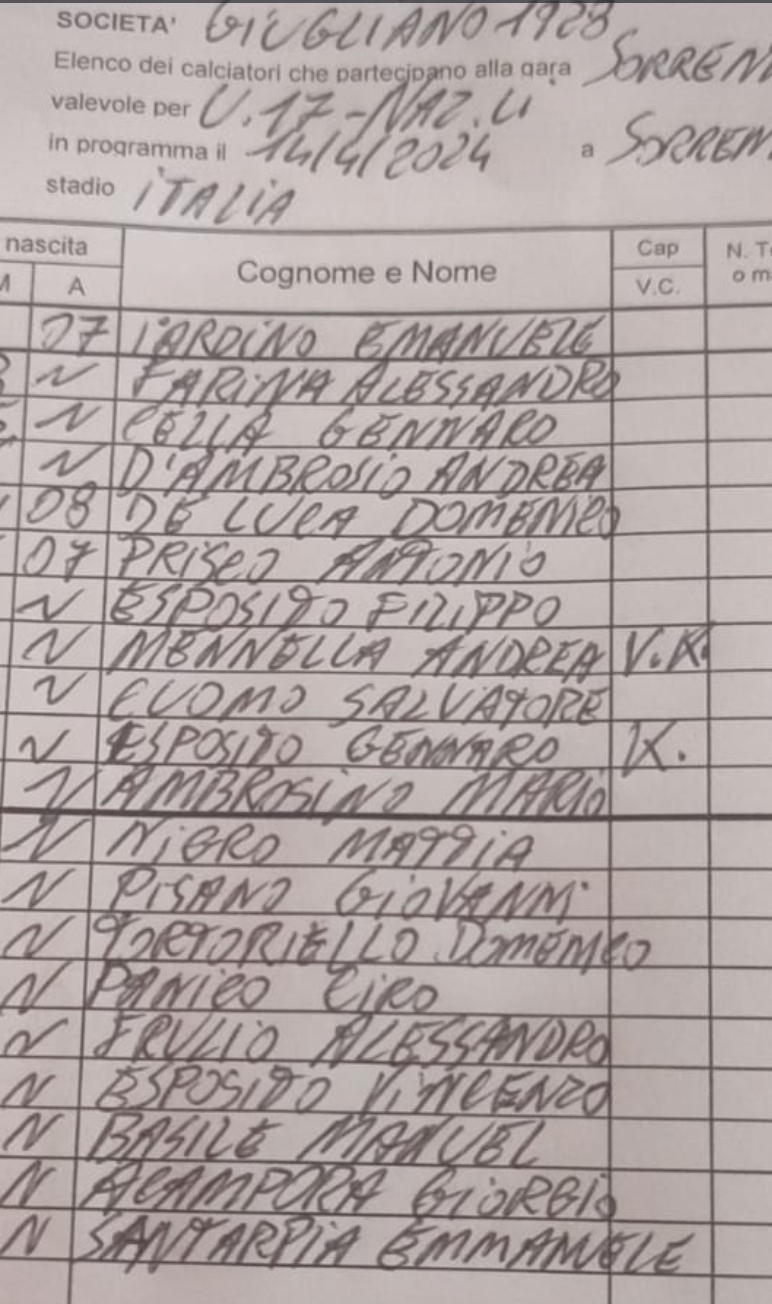 SOCIETA' GIUGLIANO 1928
Elenco dei calciatori che partecipano alla gara SORREN
valevole per U.17-NAZ.LI
in programma il 14/4/2024 a SORREN
stadio ITALIA
nascita Cap N. T
M A Cognome e Nome V.C. o m
07 IARDINO EMANUELE
~ FARINA ALESSANDRO
~ CELLA GENNARO
~ D'AMBROSIO ANDREA
08 DE LUCA DOMENICO
07 PRISCO ANTONIO
~ ESPOSITO FILIPPO
~ MENNELLA ANDREA V.K.
~ CUOMO SALVATORE
~ ESPOSITO GENNARO K.
~ AMBROSINO MARIO
~ NIGRO MATTIA
~ PISANO GIOVANNI
~ TORTORIELLO DOMENICO
~ PANICO CIRO
~ FRULIO ALESSANDRO
~ ESPOSITO VINCENZO
~ BASILE MANUEL
~ ACAMPORA GIORGIO
~ SANTARPIA EMMANUELE